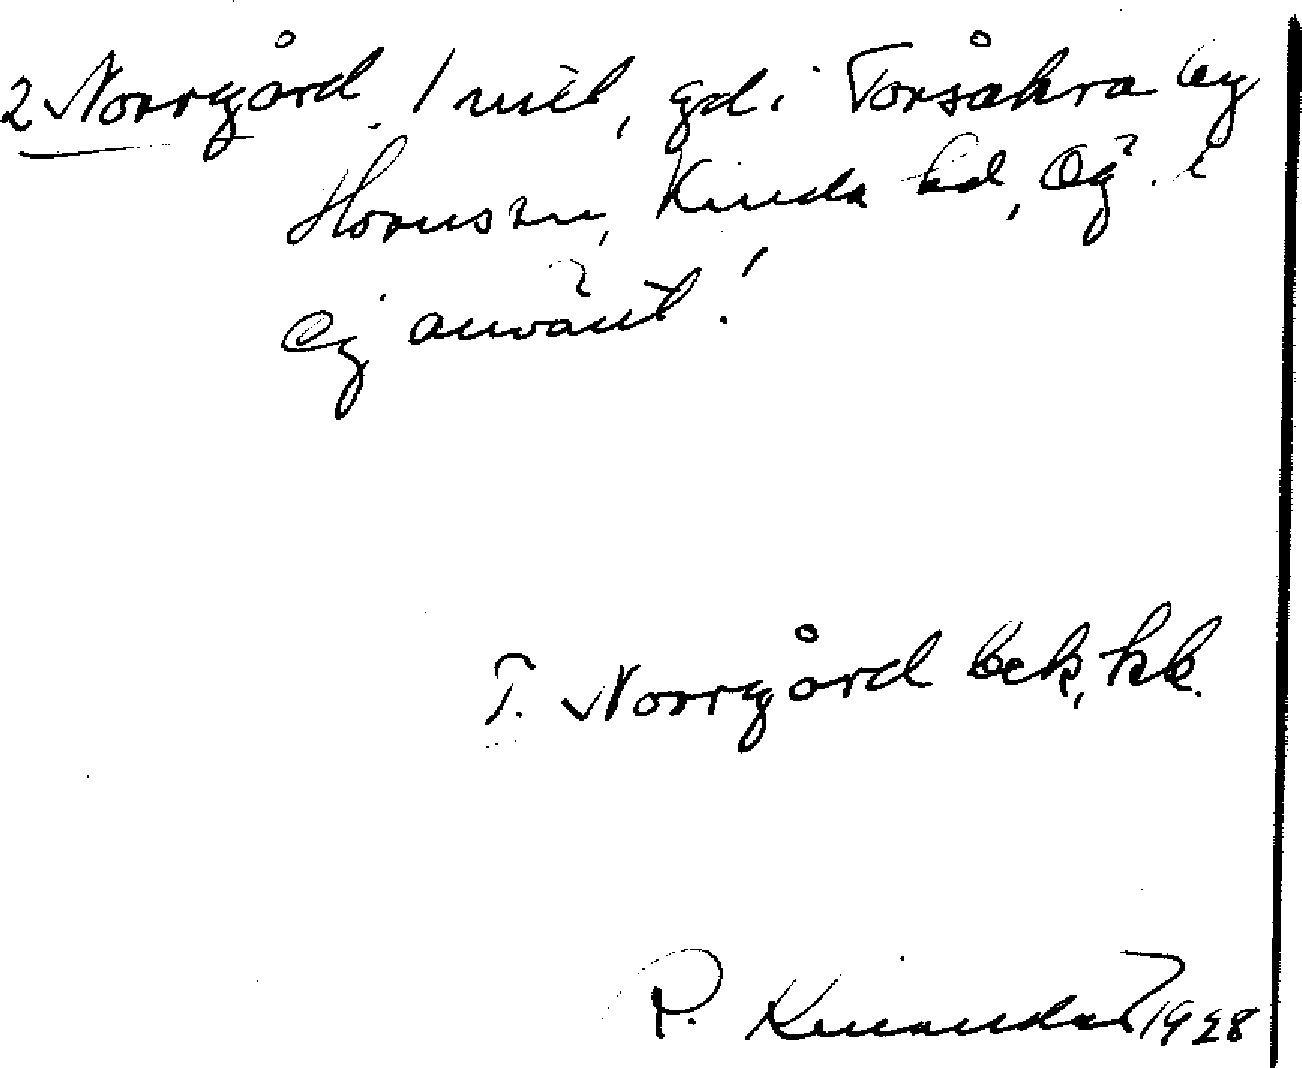 2 Norrgård. 1 mtl, gd i Torsåkra by
Horns sn, Kinda hd, Ög.
ej använt!
T. Norrgård bek, kk.
R. 1928